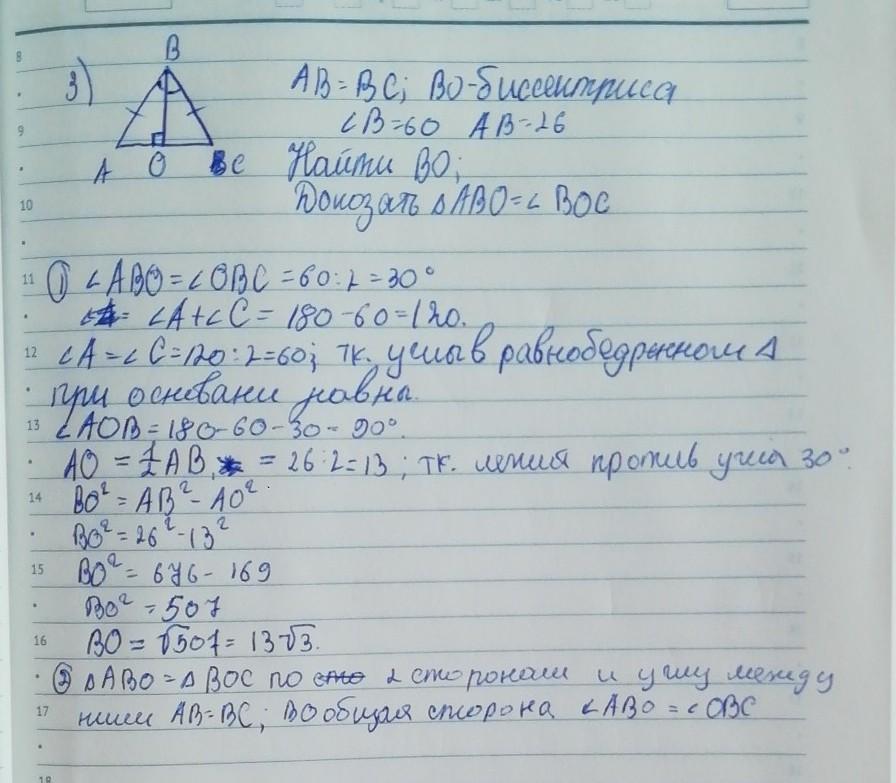 8
B
3)
AB = BC; BO-биссектриса
∠B=60 AB=26
9
A O C
Найти BO;
Докозать △ABO=∠ BOC
10
11 ① ∠ABO=∠OBC =60:2=30°
= ∠A+∠C= 180-60=120.
12 ∠A=∠C=120:2=60; тк. углы в равнобедренном △
при основани равны.
13 ∠AOB=180-60-30=90°.
AO = 1/2 AB, = 26:2=13 ; тк. лежия против угла 30°.
14 BO² = AB² - AO²
BO² = 26² - 13²
15 BO² = 676 - 169
BO² = 507
16 BO = √507 = 13√3.
② △ABO=△BOC по 2 сторонам и углу между
17 ними AB=BC; BO общая сторона ∠ABO=∠OBC
18